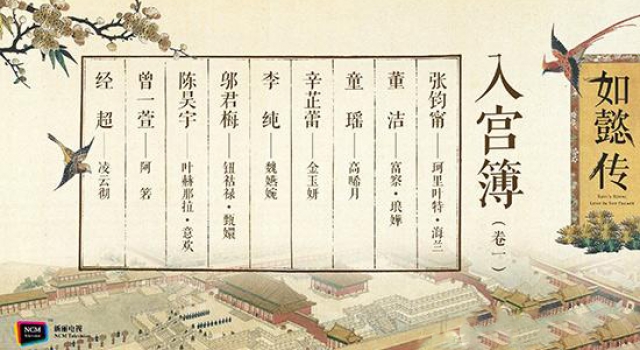 如懿传
入宫簿（卷一）
张钧甯——珂里叶特·海兰
董洁——富察·琅嬅
童瑶——高晞月
辛芷蕾——金玉妍
李纯——魏嬿婉
邬君梅——钮祜禄·甄嬛
陈昊宇——叶赫那拉·意欢
曾一萱——阿箬
经超——凌云彻
NCM
新丽电视
NCM Television